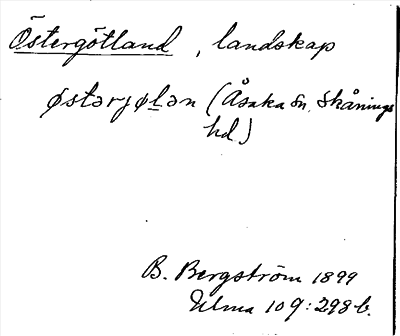 Östergötland, landskap
østərjøḻən (Åsaka sn. Skånings
hd)
B. Bergström 1899
Ulma 109:298 b.